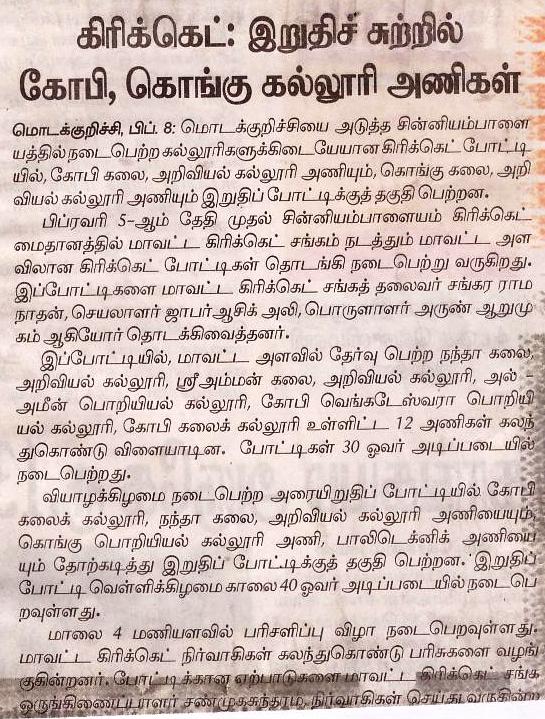 கிரிக்கெட்: இறுதிச் சுற்றில்
கோபி, கொங்கு கல்லூரி அணிகள்
மொடக்குறிச்சி, பிப். 8: மொடக்குறிச்சியை அடுத்த சின்னியம்பாளை
யத்தில் நடைபெற்ற கல்லூரிகளுக்கிடையேயான கிரிக்கெட் போட்டி
யில், கோபி கலை, அறிவியல் கல்லூரி அணியும், கொங்கு கலை, அறி
வியல் கல்லூரி அணியும் இறுதிப் போட்டிக்குத் தகுதி பெற்றன.
பிப்ரவரி 5-ஆம் தேதி முதல் சின்னியம்பாளையம் கிரிக்கெட்
மைதானத்தில் மாவட்ட கிரிக்கெட் சங்கம் நடத்தும் மாவட்ட அள
விலான கிரிக்கெட் போட்டிகள் தொடங்கி நடைபெற்று வருகிறது.
இப்போட்டிகளை மாவட்ட கிரிக்கெட் சங்கத் தலைவர் சங்கர ராம
நாதன், செயலாளர் ஜாபர்ஆசிக் அலி, பொருளாளர் அருண் ஆறுமு
கம் ஆகியோர் தொடக்கிவைத்தனர்.
இப்போட்டியில், மாவட்ட அளவில் தேர்வு பெற்ற நந்தா கலை,
அறிவியல் கல்லூரி, ஸ்ரீஅம்மன் கலை, அறிவியல் கல்லூரி, அல் -
அமீன் பொறியியல் கல்லூரி, கோபி வெங்கடேஸ்வரா பொறியி
யல் கல்லூரி, கோபி கலைக் கல்லூரி உள்ளிட்ட 12 அணிகள் கலந்
துகொண்டு விளையாடின. போட்டிகள் 30 ஓவர் அடிப்படையில்
நடைபெற்றது.
வியாழக்கிழமை நடைபெற்ற அரையிறுதிப் போட்டியில் கோபி
கலைக் கல்லூரி, நந்தா கலை, அறிவியல் கல்லூரி அணியையும்,
கொங்கு பொறியியல் கல்லூரி அணி, பாலிடெக்னிக் அணியை
யும் தோற்கடித்து இறுதிப் போட்டிக்குத் தகுதி பெற்றன. இறுதிப்
போட்டி வெள்ளிக்கிழமை காலை 40 ஓவர் அடிப்படையில் நடைபெ
றவுள்ளது.
மாலை 4 மணியளவில் பரிசளிப்பு விழா நடைபெறவுள்ளது.
மாவட்ட கிரிக்கெட் நிர்வாகிகள் கலந்துகொண்டு பரிசுகளை வழங்
குகின்றனர். போட்டிக்கான ஏற்பாடுகளை மாவட்ட கிரிக்கெட் சங்க
ஒருங்கிணைப்பாளர் சண்முகசுந்தரம், நிர்வாகிகள் செய்துவருகின்ற